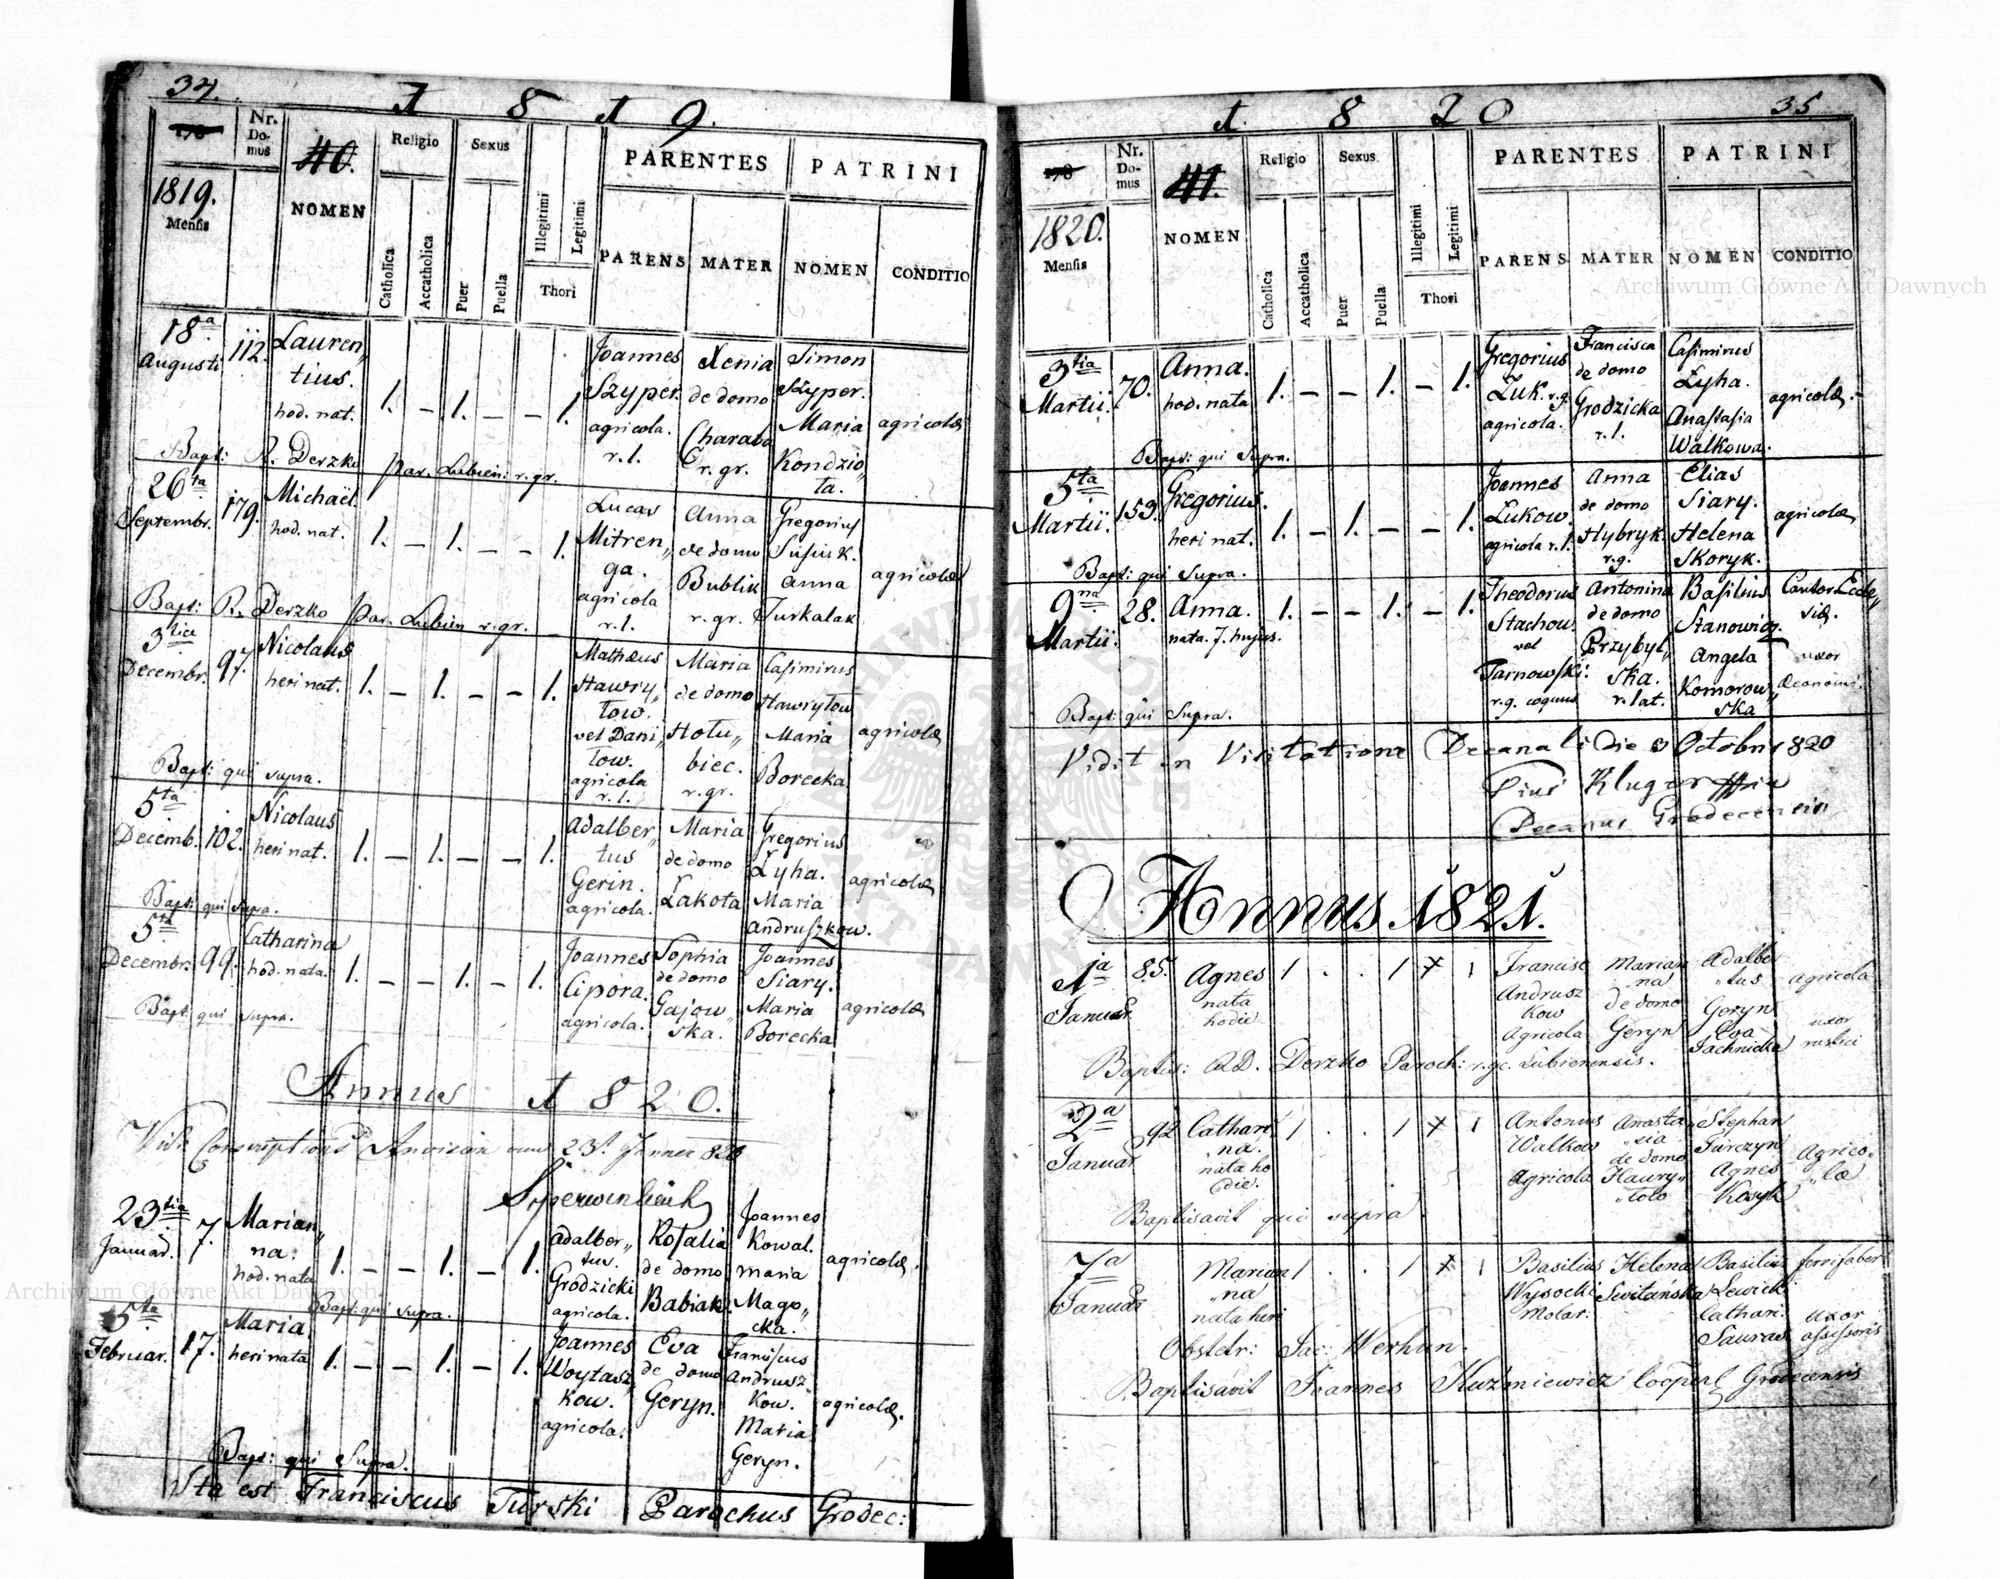 34.
1 8 1 9.
Nr. Domus
40.
Religio
Sexus
PARENTES
PATRINI
1819.
Mensis
NOMEN
Catholica
Accatholica
Puer
Puella
Illegitimi
Legitimi
Thori
PARENS
MATER
NOMEN
CONDITIO
18a Augusti 112. Laurentius. hod. nat. 1. – 1. – – 1. Joannes Szyper. agricola. r.l. Xenia de domo Charaba r. gr. Simon Szyper. Maria Kondziota. agricolæ
Bapt: R. Derzko par. Lubien: r. gr.
26ta Septembr. 179. Michaël hod. nat. 1. – 1. – – 1. Lucas Mitrenga. agricola r.l. Anna de domo Bublik r. gr. Gregorius Anna Turkalak agricolæ
Bapt: R. Derzko par. Lubien r. gr.
3tia Decembr. 97. Nicolaus heri nat. 1. – 1. – – 1. Mathæus Hawrytow. vel Danitow. agricola r.l. Maria de domo Hotubiec. r. gr. Casimirus Hawrytow Maria Borecka agricolæ
Bapt: qui supra.
5ta Decemb. 102. Nicolaus heri nat. 1. – 1. – – 1. Adalbertus Gerin. agricola. Maria de domo Łakota Gregorius Łyha. Maria Andruszkow. agricolæ
Bapt: qui supra.
5ta Decembr. 99. Catharina hod. nata. 1. – – 1. – 1. Joannes Cipora. agricola. Sophia de domo Gajowska. Joannes Siary. Maria Borecka agricolæ
Bapt: qui supra.
Annus 1820.
23t Jänner 820
23tia Januar. 7. Marianna. hod. nata 1. – – 1. – 1. Adalbertus. Grodzicki agricola. Rosalia de domo Babiak. Joannes Kowal. Maria Magocka. agricolæ.
Bapt: qui supra.
5ta Februar. 17. Maria heri nata 1. – – 1. – 1. Joannes Woytaszkow. agricola. Eva de domo Geryn. Franciscus Andruszkow. Maria Geryn. agricolæ.
Bapt: qui Supra.
Ita est Franciscus Turski Parochus Grodec:
1 8 2 0
35
Nr. Domus
41.
Religio
Sexus
PARENTES
PATRINI
1820.
Mensis
NOMEN
Catholica
Accatholica
Puer
Puella
Illegitimi
Legitimi
Thori
PARENS
MATER
NOMEN
CONDITIO
3tia Martii. 70. Anna. hod. nata 1. – – 1. – 1. Gregorius Łuk. r.g. agricola. Francisca de domo Grodzicka r.l. Casimirus Łyha. Anastasia Walkowa. agricolæ.
Bapt: qui Supra.
5ta Martii. 159. Gregorius. heri nat. 1. – 1. – – 1. Joannes Lukow. agricola r.l. Anna de domo Hybryk. r.g. Elias Siary. Helena Skoryk. agricolæ
Bapt: qui Supra.
9na Martii. 28. Anna. nata. 7. hujus. 1. – – 1. – 1. Theodorus Stachow. vel Tarnowski. r.g. coquus Antonina de domo Przybylska. r. lat. Basilius Stanowicz. Angela Komorowska Cantor Ecclesiæ. uxor œconomi.
Bapt: qui Supra.
Vidit in Visitatione Decanali Die 3 Octobr 1820
Pius Kluger
Decanus Grodecensis
Annus 1821.
1a Januar 85. Agnes nata hodie. 1 . . 1 x 1 Francisc Andruszkow Agricola Marianna de domo Geryn Adalbertus Geryn Eva Jachnidza agricola uxor rustici
Baptis: R.D. Derzko Paroch: r. gc. Lubienensis.
2a Januar 92 Catharina. nata hodie. 1 . . 1 x 1 Antonius Walkow Agricola Anastasia de domo Hawryto Stephan Jurczyn Agnes Kosyk Agricolæ
Baptisavit qui supra
7a Januar Marianna nata heri 1 . . 1 x 1 Basilius Wysocki Molar. Helena Switańska Basilius Lewicki Cathari. Sauras ferrifaber uxor assessoris
Obstetr: Jac: Werhun.
Baptisavit Joannes Kuźmiewicz Cooper Grodecensis
Archiwum Główne Akt Dawnych
Archiwum Główne Akt Dawnych
ARCHIWUM GŁÓWNE AKT DAWNYCH